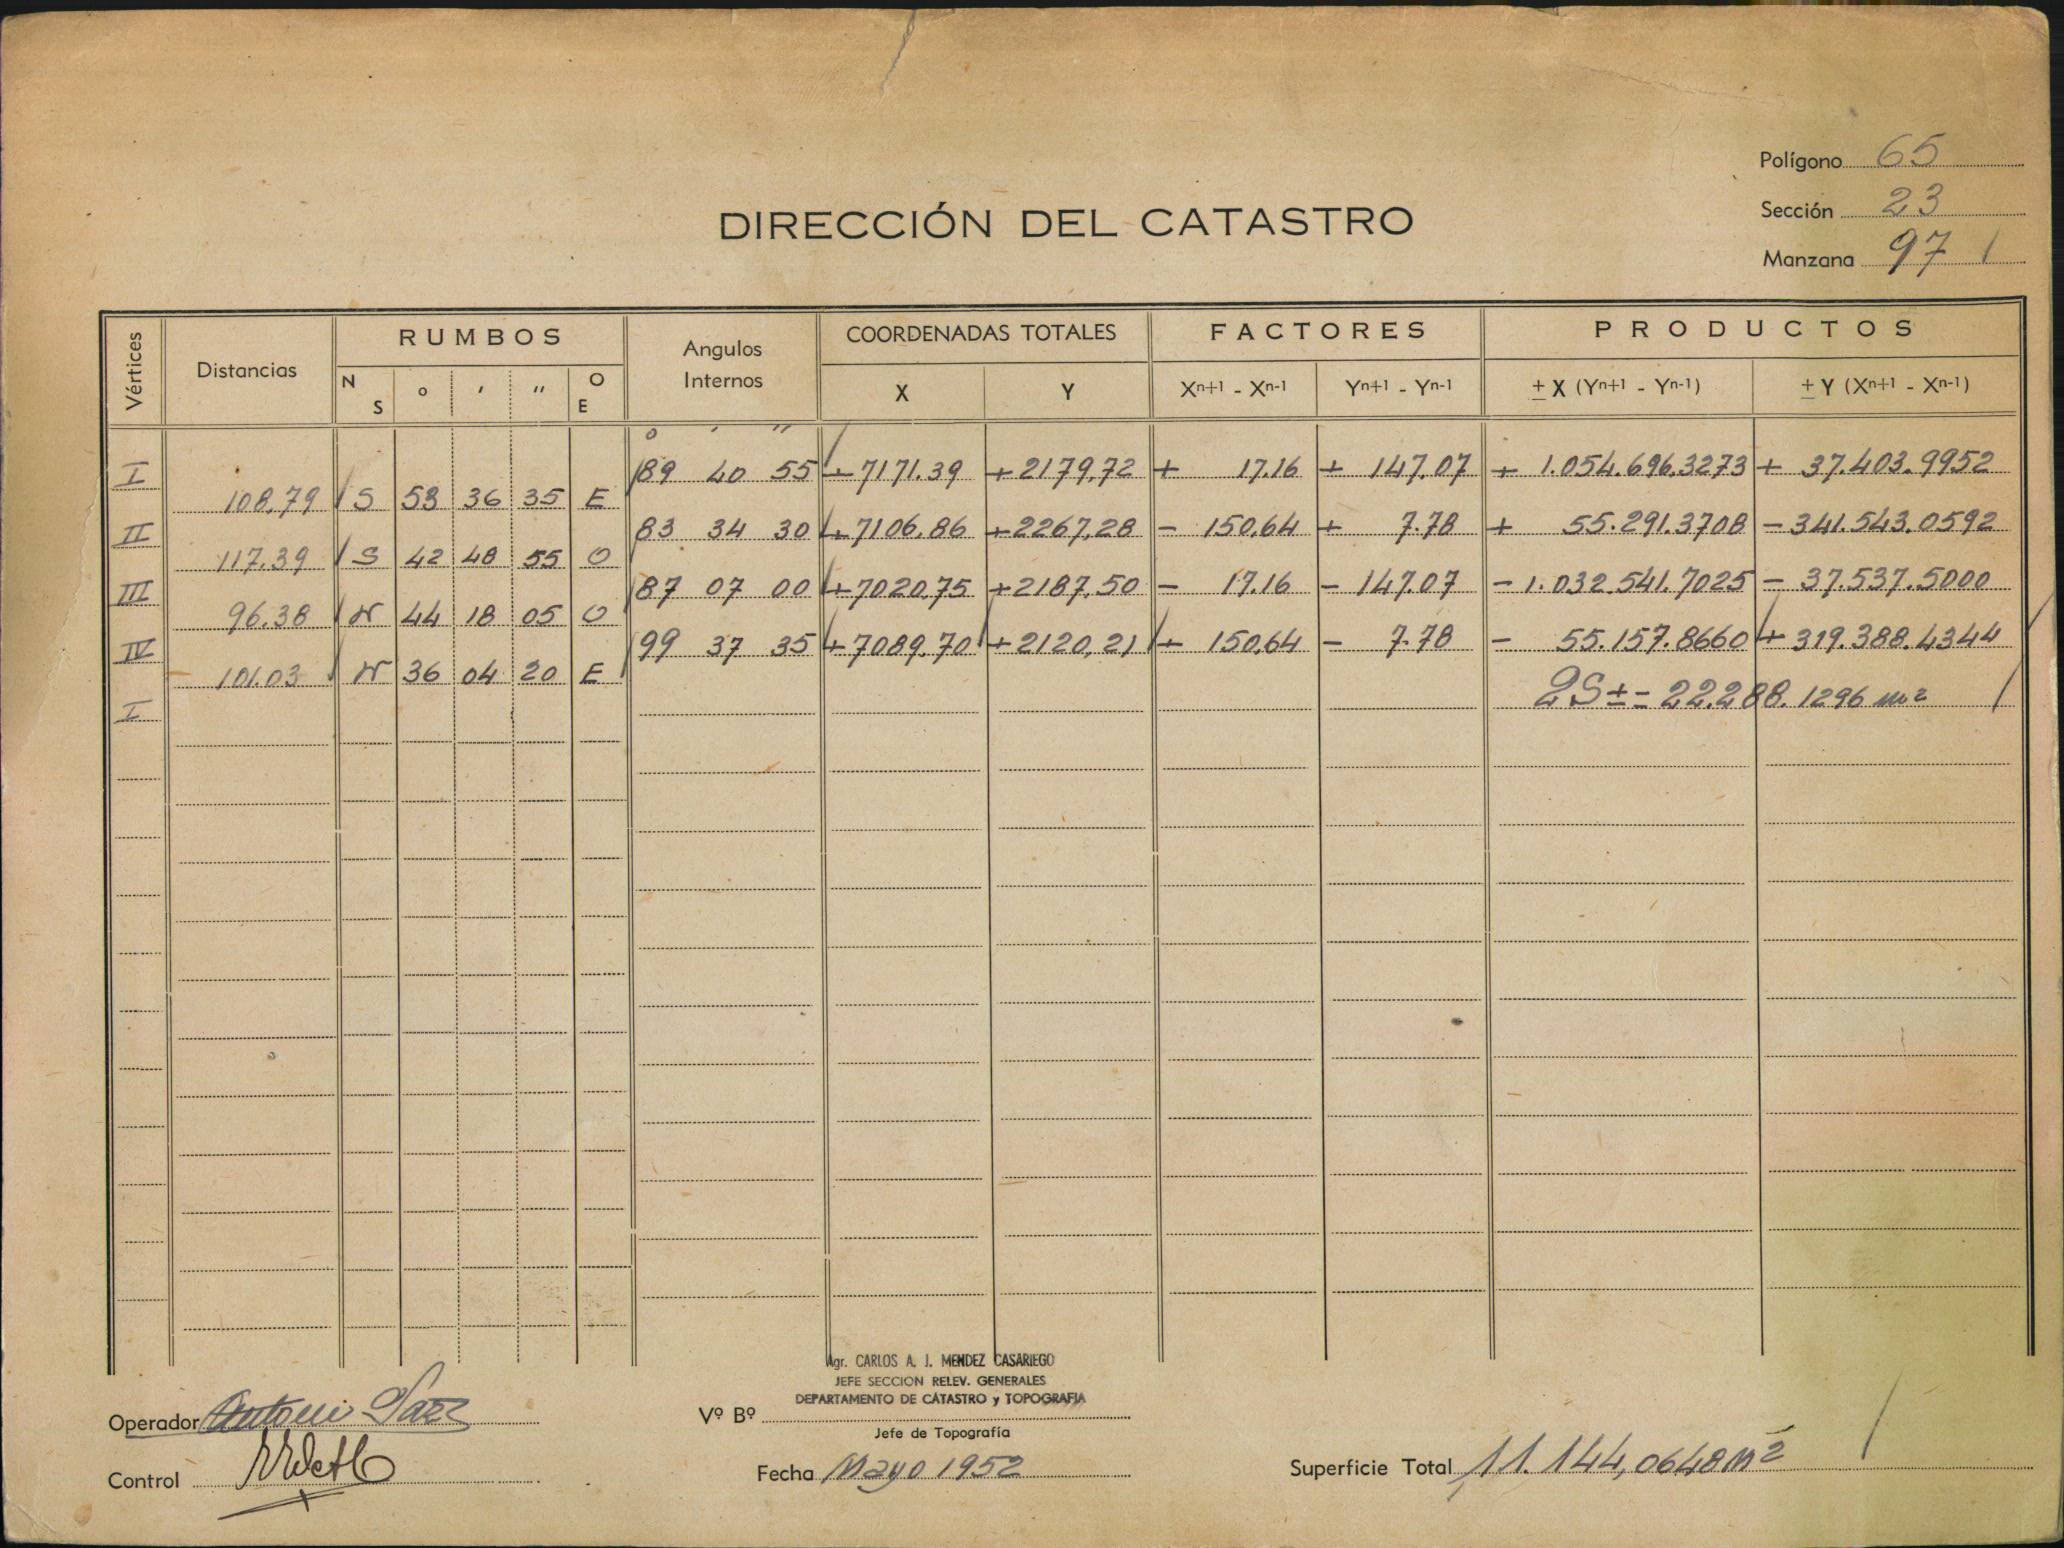 Polígono 65
Sección 23
Manzana 97
DIRECCIÓN DEL CATASTRO
Vértices Distancias RUMBOS Angulos Internos COORDENADAS TOTALES FACTORES PRODUCTOS
N S ° ' " O E X Y Xn+1 - Xn-1 Yn+1 - Yn-1 ± X (Yn+1 - Yn-1) ± Y (Xn+1 - Xn-1)
° ' "
I 89 40 55 +7171.39 +2179,72 + 17.16 + 147,07 + 1.054.696.3273 + 37.403.9952
108,79 S 53 36 35 E
II 83 34 30 +7106,86 +2267,28 - 150,64 + 7.78 + 55.291.3708 - 341.543.0592
117,39 S 42 48 55 O
III 87 07 00 +7020,75 +2187,50 - 17.16 - 147.07 - 1.032.541.7025 - 37.537.5000
96.38 N 44 18 05 O
IV 99 37 35 +7089.70 +2120,21 + 150,64 - 7.78 - 55.157.8660 + 319.388.4344
101.03 N 36 04 20 E
I 2S ± - 22.288.1296 m2
Agr. CARLOS A. J. MENDEZ CASARIEGO
JEFE SECCION RELEV. GENERALES
DEPARTAMENTO DE CATASTRO y TOPOGRAFIA
Operador Antonio Saez
Vº Bº
Jefe de Topografía
Control
Fecha Mayo 1952
Superficie Total 11.144,0648 M2